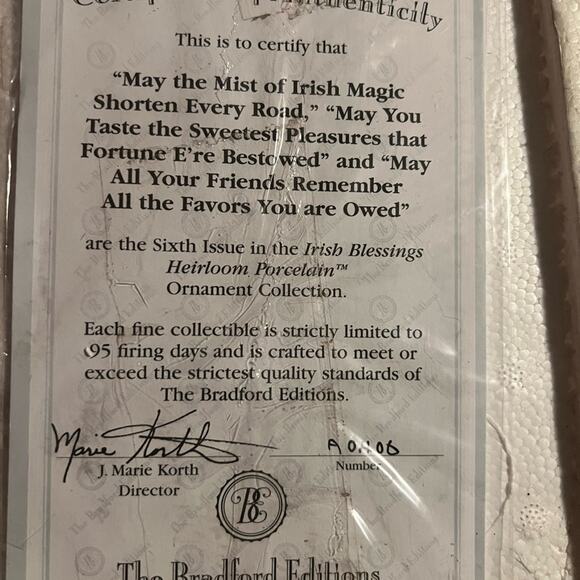 Authenticity
This is to certify that
“May the Mist of Irish Magic
Shorten Every Road,” “May You
Taste the Sweetest Pleasures that
Fortune E’re Bestowed” and “May
All Your Friends Remember
All the Favors You are Owed”
are the Sixth Issue in the Irish Blessings
Heirloom Porcelain™
Ornament Collection.
Each fine collectible is strictly limited to
95 firing days and is crafted to meet or
exceed the strictest quality standards of
The Bradford Editions.
Marie Korth
J. Marie Korth
Director
Number
BE
The Bradford Editions